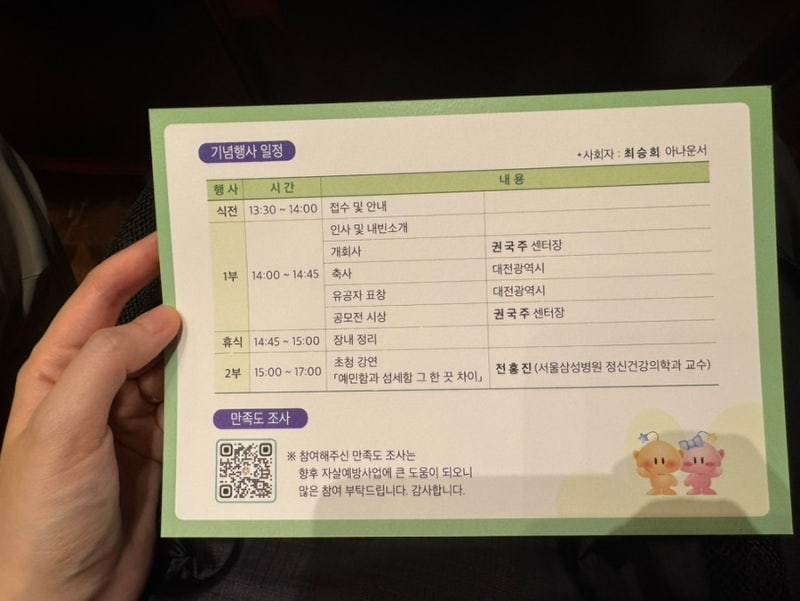 기념행사 일정
•사회자 : 최승희 아나운서
행사 시간 내용
식전 13:30 ~ 14:00 접수 및 안내
1부 14:00 ~ 14:45 인사 및 내빈소개
개회사 권국주 센터장
축사 대전광역시
유공자 표창 대전광역시
공모전 시상 권국주 센터장
휴식 14:45 ~ 15:00 장내 정리
2부 15:00 ~ 17:00 초청 강연
「예민함과 섬세함 그 한 끗 차이」 전홍진 (서울삼성병원 정신건강의학과 교수)
만족도 조사
※ 참여해주신 만족도 조사는
향후 자살예방사업에 큰 도움이 되오니
많은 참여 부탁드립니다. 감사합니다.